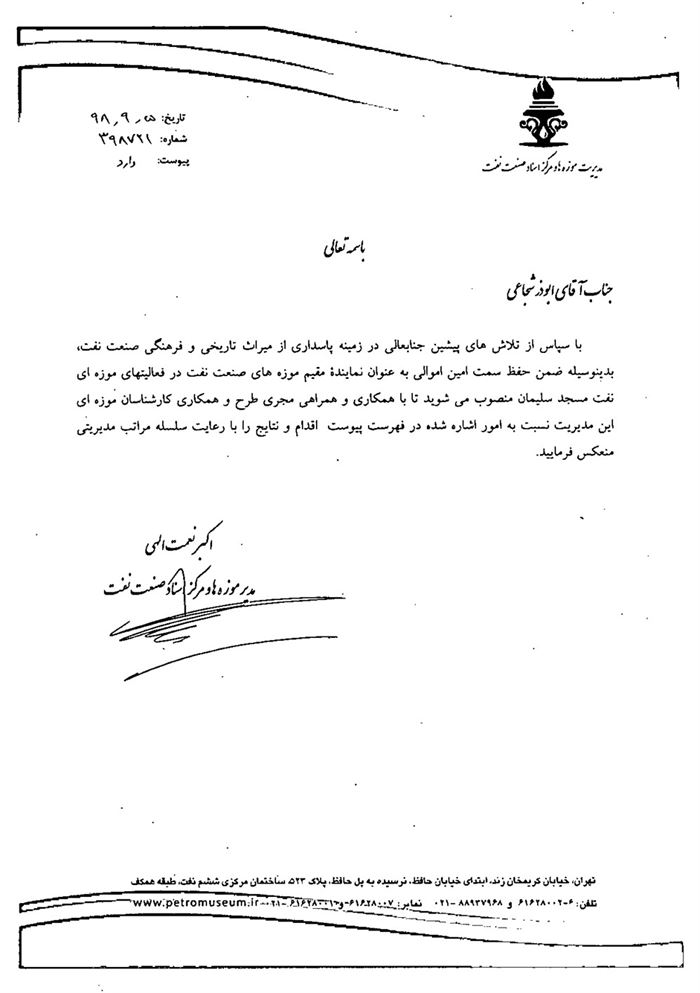 تاریخ: ۹۸٫۹٫۲۵
شماره: ۳۹۸۷۲۱
پیوست: دارد
مدیریت موزه ها و مرکز اسناد صنعت نفت
باسمه تعالی
جناب آقای ابوذر شجاعی
با سپاس از تلاش های پیشین جنابعالی در زمینه پاسداری از میراث تاریخی و فرهنگی صنعت نفت،
بدینوسیله ضمن حفظ سمت امین اموالی به عنوان نمایندۀ مقیم موزه های صنعت نفت در فعالیتهای موزه ای
نفت مسجد سلیمان منصوب می شوید تا با همکاری و همراهی مجری طرح و همکاری کارشناسان موزه ای
این مدیریت نسبت به امور اشاره شده در فهرست پیوست اقدام و نتایج را با رعایت سلسله مراتب مدیریتی
منعکس فرمایید.
اکبر نعمت الهی
مدیر موزه ها و مرکز اسناد صنعت نفت
تهران، خیابان کریمخان زند، ابتدای خیابان حافظ، نرسیده به پل حافظ، پلاک ۵۲۳، ساختمان مرکزی ششم نفت، طبقه همکف
تلفن: ۶-۶۱۶۲۸۰۰۲ و ۸۸۹۳۷۹۶۸-۰۲۱ نمابر: ۶۱۶۲۸۰۰۷-و ۶۱۶۲۸۰۰۱-۰۲۱ www.petromuseum.ir